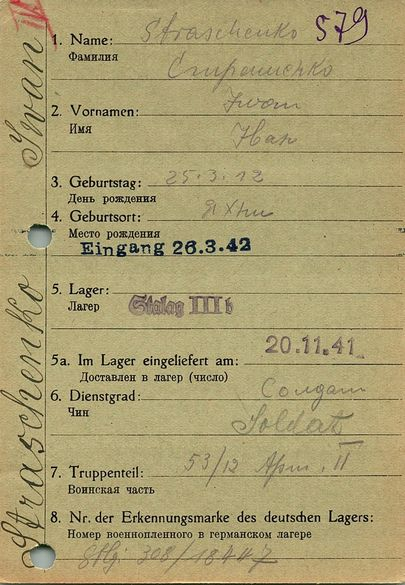 Straschenko Iwan
III
1. Name: Straschenko 579
Фамилия
2. Vornamen: Iwan
Имя Иван
3. Geburtstag: 25.3.12
День рождения
4. Geburtsort:
Место рождения
Eingang 26.3.42
5. Lager:
Лагер Stalag III b
5a. Im Lager eingeliefert am: 20.11.41
Доставлен в лагер (число)
6. Dienstgrad: Солдат
Чин Soldat
II
7. Truppenteil: 53/12
Воинская часть
8. Nr. der Erkennungsmarke des deutschen Lagers:
Номер военнопленного в германском лагере
308/18447